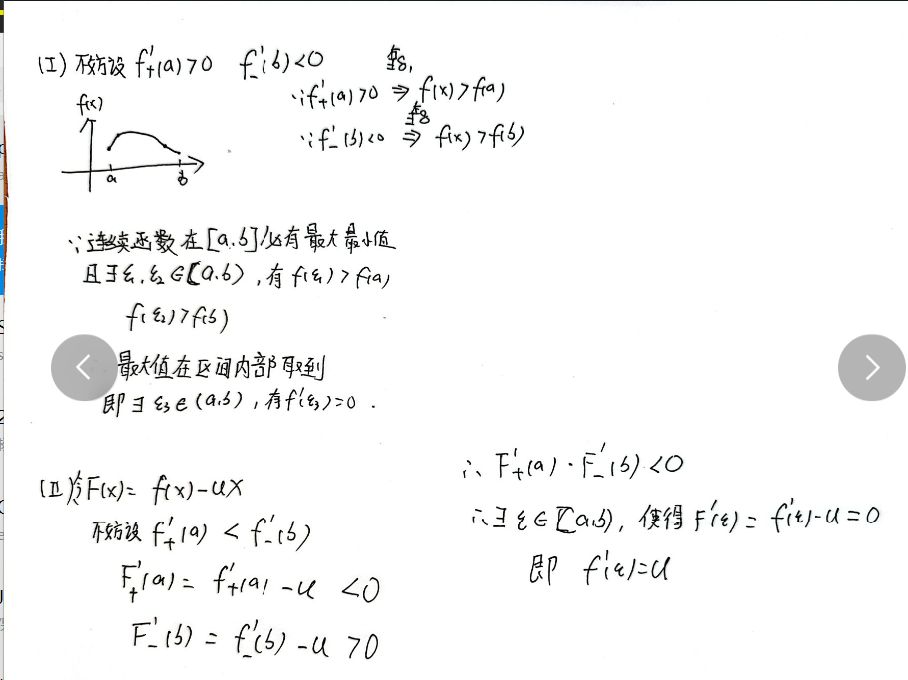 (I) 不妨设 f'₊(a)>0 f'₋(b)<0
∵f'₊(a)>0 ⇒ f(x)>f(a)
∵f'₋(b)<0 ⇒ f(x)>f(b)
f(x)
a
b
∵连续函数在[a,b]必有最大最小值
且∃ε₁,ε₂∈[a,b),有f(ε₁)>f(a)
f(ε₂)>f(b)
最大值在区间内部取到
即∃ε₃∈(a,b),有f'(ε₃)=0.
(II)令F(x)= f(x)-ux
不妨设 f'₊(a) < f'₋(b)
F'₊(a)= f'₊(a)-u <0
F'₋(b) = f'₋(b)-u >0
∴ F'₊(a)·F'₋(b)<0
∴∃ε∈[a,b), 使得F'(ε)= f'(ε)-u=0
即 f'(ε)=u